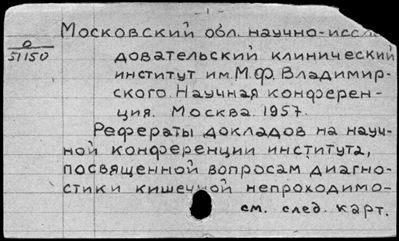 Московский обл. научно-иссле
о
51150
довательский клинический
институт им. М.Ф. Владимир-
ского. Научная конферен-
ция. Москва. 1957.
Рефераты докладов на науч-
ной конференции института,
посвященной вопросам диагно-
стики кишечной непроходимо-
см. след. карт.